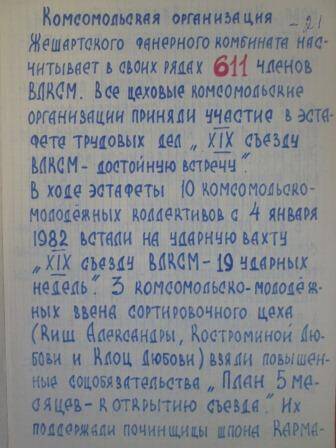 Комсомольская организация
- 21
Жешартского фанерного комбината нас-
читывает в своих рядах 611 членов
ВЛКСМ. Все цеховые комсомольские
организации приняли участие в эста-
фете трудовых дел „XIX съезду
ВЛКСМ- достойную встречу".
В ходе эстафеты 10 комсомольско-
молодёжных коллективов с 4 января
1982 встали на ударную вахту
„XIX съезду ВЛКСМ-19 ударных
недель". 3 комсомольско-молодёж-
ных звена сортировочного цеха
(Кищ Александры, Костроминой Лю-
бови и Клоц Любови) взяли повышен-
ные соцобязательства „План 5 ме-
сяцев- к открытию съезда". Их
поддержали починщицы шпона Карма-